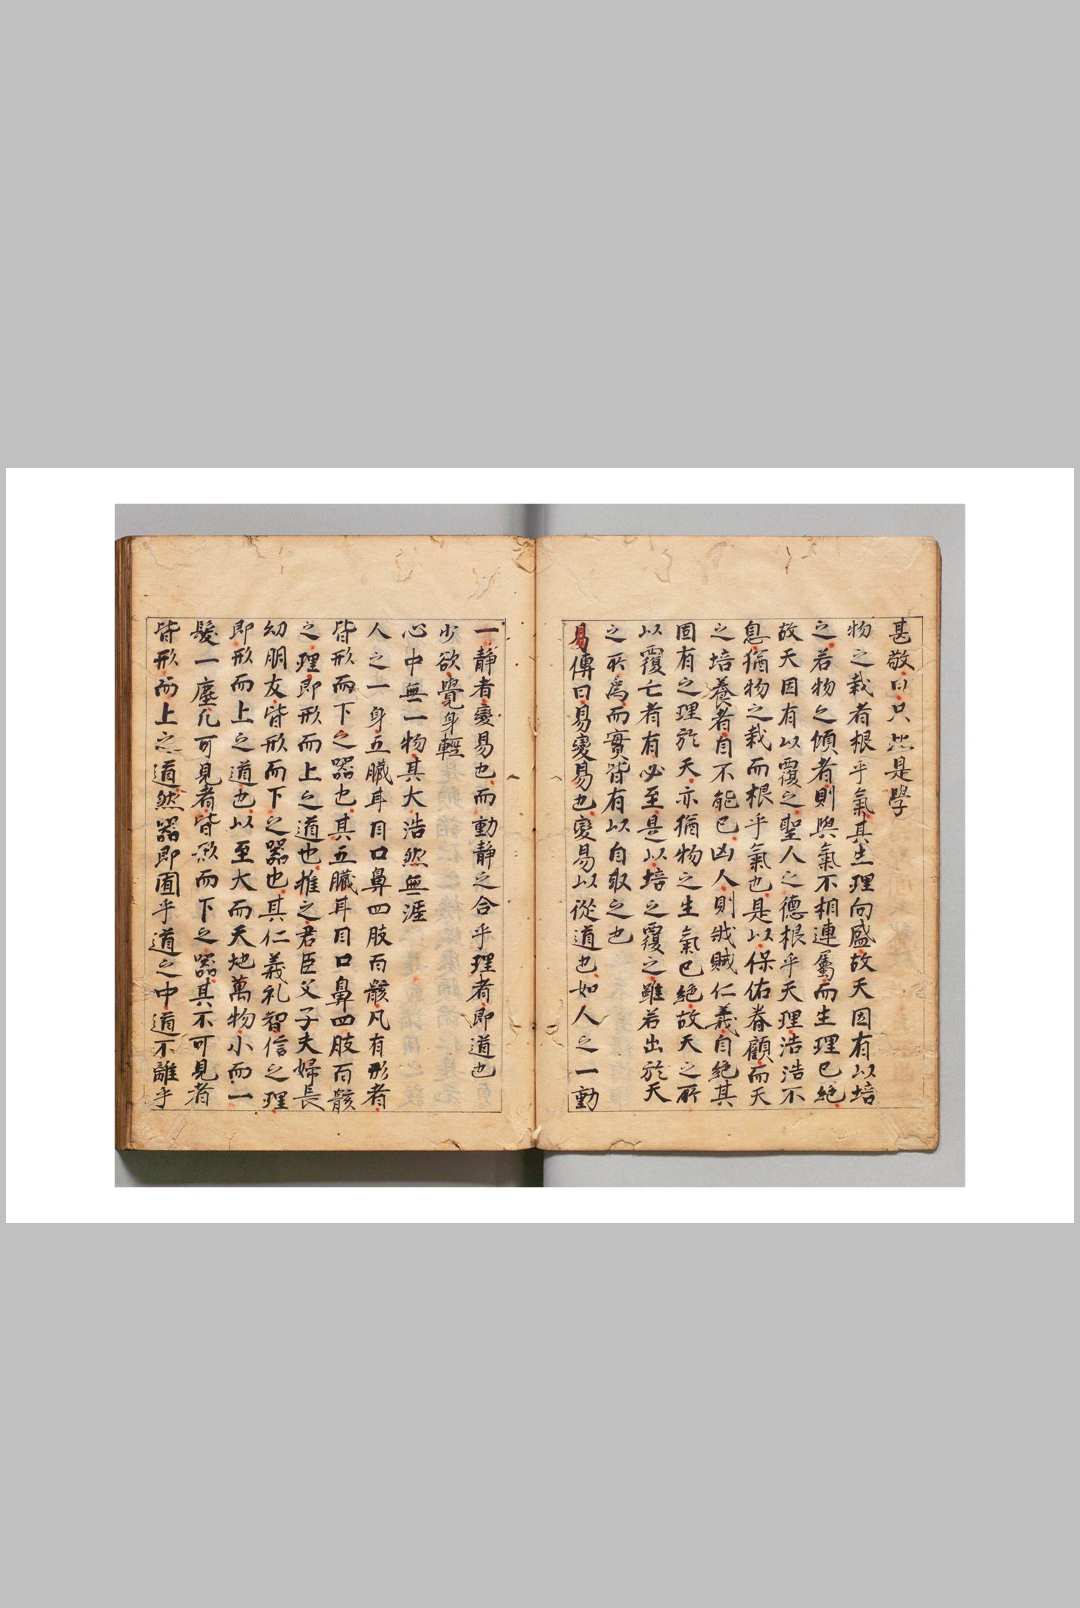 甚敬曰只此是學
物之栽者根乎氣其生理向盛故天因有以培
之若物之傾者則與氣不相連屬而生理已絕
故天因有以覆之聖人之德根乎天理浩浩不
息猶物之栽而根乎氣也是以保佑眷顧而天
之培養者自不能已凶人則戕賊仁義自絕其
固有之理於天亦猶物之生氣已絕故天之所
以覆亡者有必至是以培之覆之雖若出於天
之所為而實皆有以自取之也
易傳曰易變易也變易以從道也如人之一動
一靜者變易也而動靜之合乎理者即道也
少欲覺身輕
心中無一物其大浩然無涯
人之一身五臟耳目口鼻四肢百骸凡有形者
皆形而下之器也其五臟耳目口鼻四肢百骸
之理即形而上之道也推之君臣父子夫婦長
幼朋友皆形而下之器也其仁義礼智信之理
即形而上之道也以至大而天地萬物小而一
髮一塵凡可見者皆形而下之器其不可見者
皆形而上之道然器即囿乎道之中道不離乎